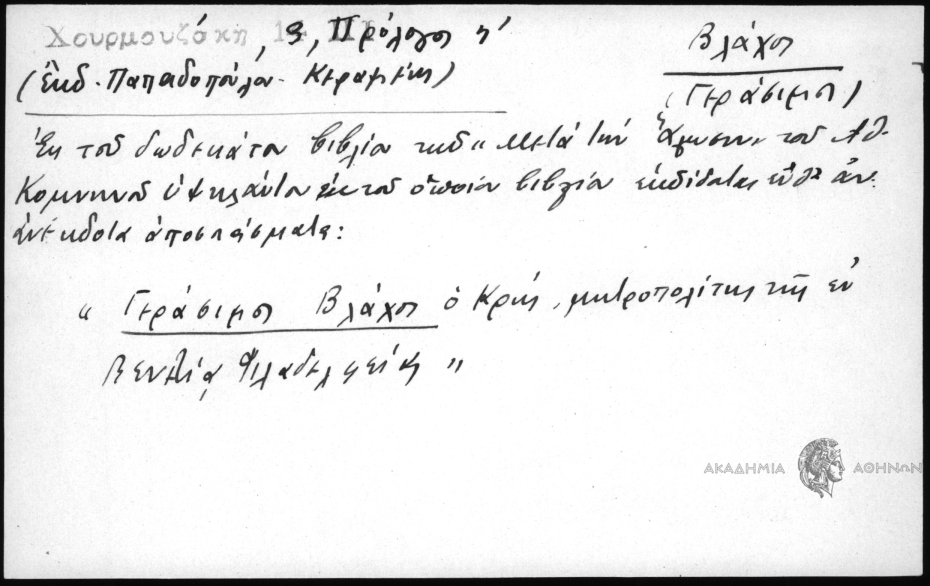 Χουρμουζάκη 13, Πρόλογος η'
(ἐκδ. Παπαδοπούλου - Κεραμέως)
Βλάχος
(Γεράσιμος)
Ἐκ τοῦ δωδεκάτου βιβλίου τῶν "Μετὰ τὴν Ἅλωσιν" τοῦ Ἀθ.
Κομνηνοῦ Ὑψηλάντου ἐκ τοῦ ὁποίου βιβλίου ἐκδίδοται
ἀνέκδοτα ἀποσπάσματα:
" Γεράσιμος Βλάχος ὁ Κρής, μητροπολίτης τῆς ἐν
Βενετίᾳ Φιλαδελφείας "
ΑΚΑΔΗΜΙΑ ΑΘΗΝΩΝ